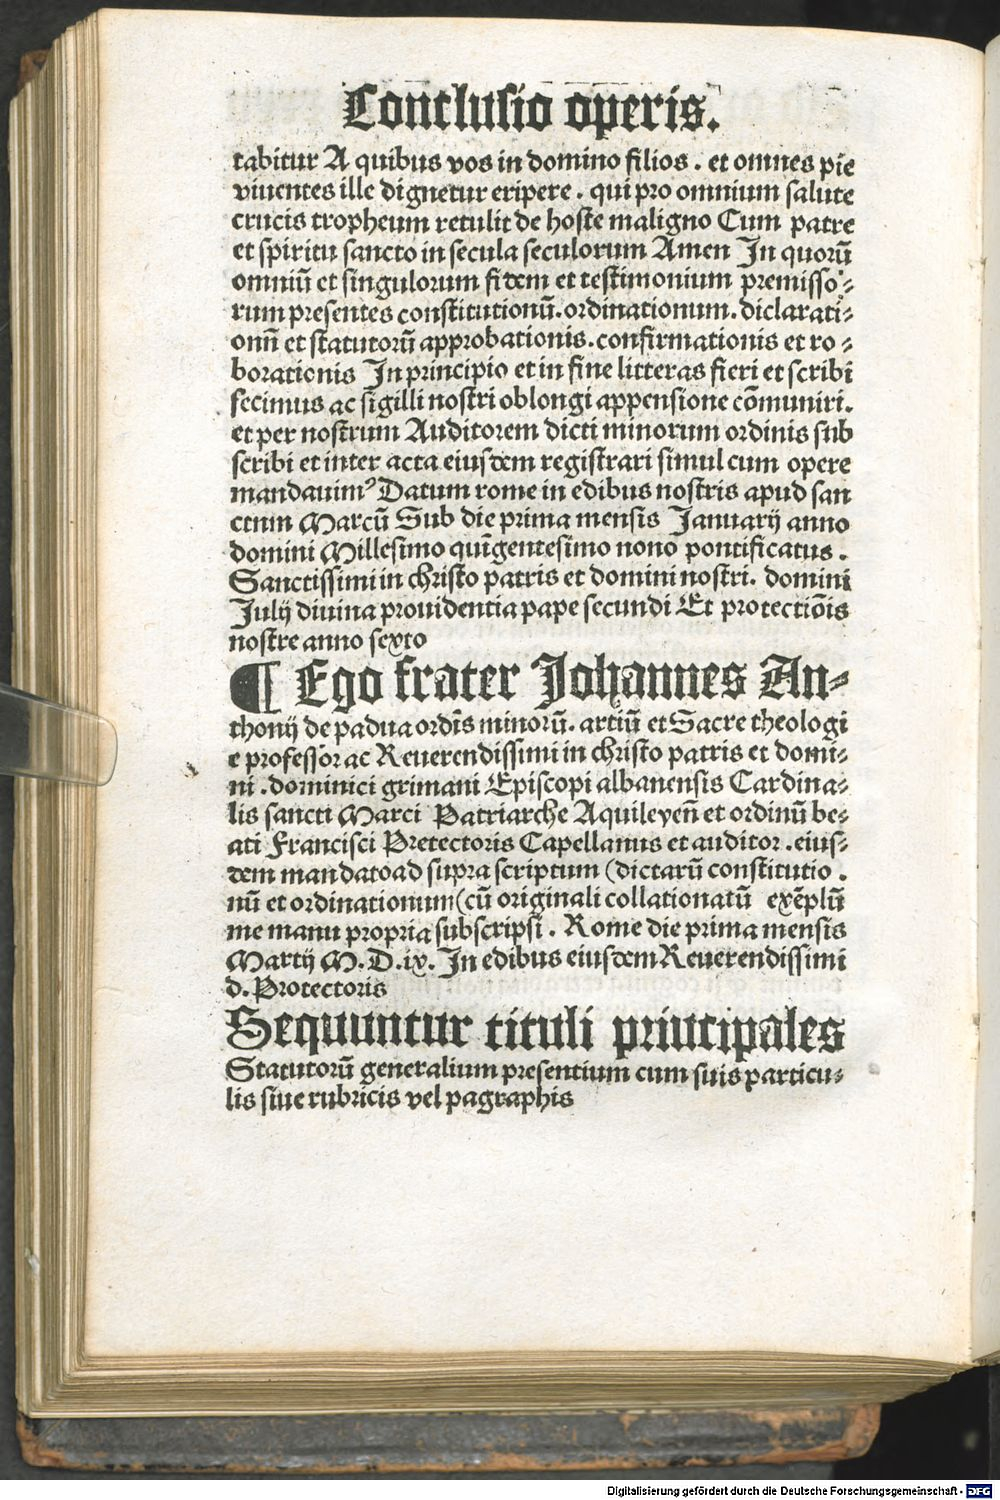 Conclusio operis.
tabitur A quibus vos in domino filios . et omnes pie
viuentes ille dignetur eripere . qui pro omnium salute
crucis tropheum retulit de hoste maligno Cum patre
et spiritu sancto in secula seculorum Amen In quorū
omniū et singulorum fidem et testimonium premisso⸗
rum presentes constitutionū. ordinationum. diclarati⸗
onū et statutorū approbationis. confirmationis et ro⸗
borationis In principio et in fine litteras fieri et scribi
fecimus ac sigilli nostri oblongi appensione cōmuniri.
et per nostrum Auditorem dicti minorum ordinis sub
scribi et inter acta eiusdem registrari simul cum opere
mandauimꝰ Datum rome in edibus nostris apud san
ctum Marcū Sub die prima mensis Januarij anno
domini Millesimo quīgentesimo nono pontificatus .
Sanctissimi in christo patris et domini nostri. domini
Julij diuina prouidentia pape secundi Et protectiōis
nostre anno sexto
¶ Ego frater Johannes An⸗
thonij de padua ordīs minorū. artiū et Sacre theologi
e professor ac Reuerendissimi in christo patris et domi⸗
ni . dominici grimani Episcopi albanensis Cardina⸗
lis sancti Marci Patriarche Aquileyeñ et ordinū be⸗
ati Francisci Pretectoris Capellanus et auditor . eius⸗
dem mandatoad supra scriptum (dictarū constitutio .
nū et ordinationum(cū originali collationatū exēplū
me manu propria subscripsi . Rome die prima mensis
Martij M. D. ix. In edibus eiusdem Reuerendissimi
d. Protectoris
Sequuntur tituli principales
Statutorū generalium presentium cum suis particu⸗
lis siue rubricis vel pagraphis
Digitalisierung gefördert durch die Deutsche Forschungsgemeinschaft - DFG